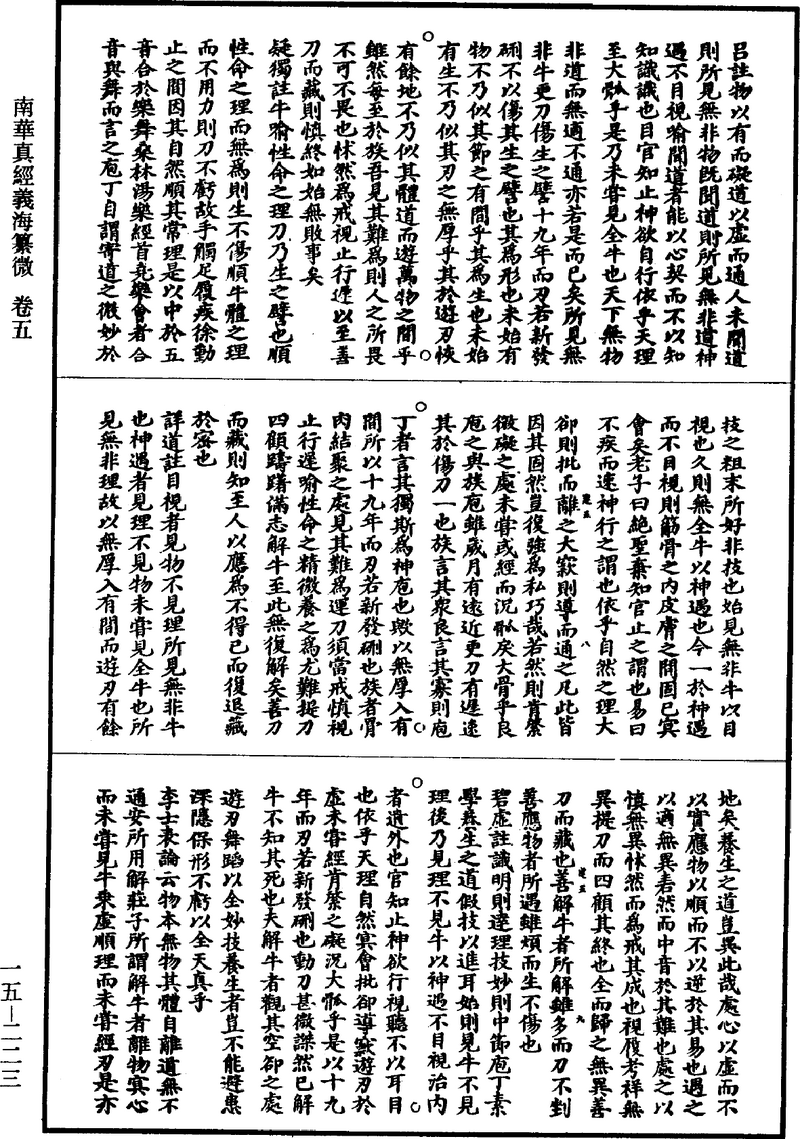 南華真經義海纂微　卷五
呂註物以有而礙道以虛而通人未聞道
則所見無非物既聞道則所見無非道神
遇不目視喻聞道者能以心契而不以知
知識識也目官知止神欲自行依乎天理
至大軱乎是乃未嘗見全牛也天下無物
非道而無適不通亦若是而已矣所見無
非牛更刀傷生之譬十九年而刃若新發
硎不以傷其生之譬也其為形也未始有
物不乃似其節之有間乎其為生也未始
有生不乃似其刃之無厚乎其於遊刃恢
有餘地不乃似其體道而遊萬物之間乎
雖然每至於族吾見其難為則人之所畏
不可不畏也怵然為戒視止行遲以至善
刀而藏則慎終如始無敗事矣
疑獨註牛喻性命之理刀乃生之譬也順
性命之理而無為則生不傷順牛體之理
而不用力則刀不虧故手觸足履疾徐動
止之間因其自然順其常理是以中於五
音合於樂舞桑林湯樂經首堯樂會者合
音與舞而言之庖丁自謂寄道之微妙於
技之粗末所好非技也始見無非牛以目
視也久則無全牛以神遇也今一於神遇
而不目視則筋骨之內皮膚之間固已冥
會矣老子曰絕聖棄知官止之謂也易曰
不疾而速神行之謂也依乎自然之理大
郤則批而離之大窾則導而通之凡此皆
因其固然豈復強為私巧哉若然則肯綮
微礙之處未嘗或經而況軱戾大骨乎良
庖之與族庖雖歲月有遠近更刀有遲速
其於傷刀一也族言其眾良言其寡則庖
丁者言其獨斯為神庖也歟以無厚入有
間所以十九年而刃若新發硎也族者骨
肉結聚之處見其難為運刀須當戒慎視
止行遲喻性命之精微養之為尤難提刀
四顧躊躇滿志解牛至此無復解矣善刀
而藏則知至人以應為不得已而復退藏
於密也
詳道註目視者見物不見理所見無非牛
也神遇者見理不見物未嘗見全牛也所
見無非理故以無厚入有間而遊刃有餘
地矣養生之道豈異此哉處心以虛而不
以實應物以順而不以逆於其易也遇之
以適無異砉然而中音於其難也處之以
慎無異怵然而為戒其成也視履考祥無
異提刀而四顧其終也全而歸之無異善
刀而藏也善解牛者所解雖多而刀不割
善應物者所遇雖煩而生不傷也
碧虛註識明則達理技妙則中節庖丁素
學養生之道假技以進耳始則見牛不見
理後乃見理不見牛以神遇不目視洽內
者遺外也官知止神欲行視聽不以耳目
也依乎天理自然冥會批郤導窾遊刃於
虛未嘗經肯綮之礙況大軱乎是以十九
年而刃若新發硎也動刀甚微謋然已解
牛不知其死也夫解牛者觀其空郤之處
遊刃舞蹈以全妙技養生者豈不能避患
深隱保形不虧以全天真乎
李士表論云物本無物其體自離道無不
通安所用解莊子所謂解牛者離物冥心
而未嘗見牛乘虛順理而未嘗經刃是亦
一五—二二三